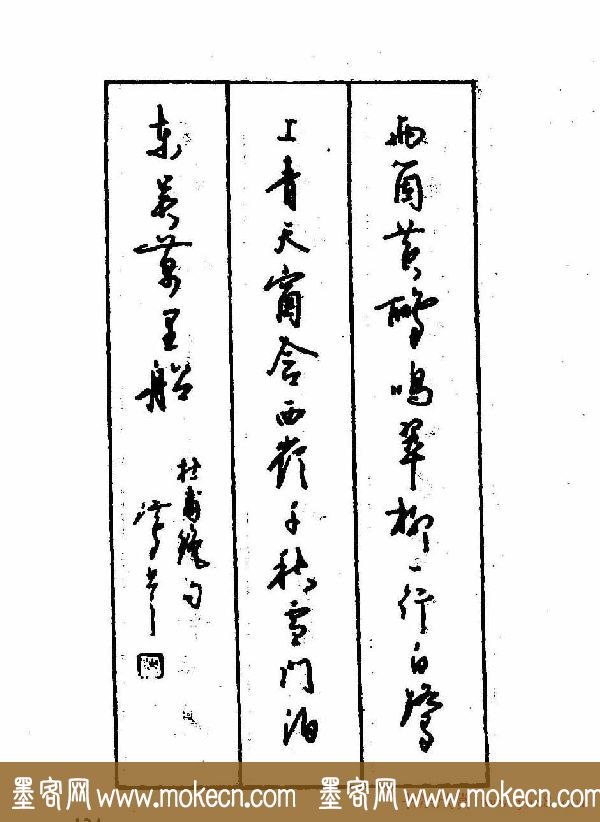 两箇黄鸝鸣翠柳一行白鹭
上青天窗含西岭千秋雪门泊
东吴万里船
杜甫绝句
墨客网 www.mokecn.com 墨客网 www.mokecn.com